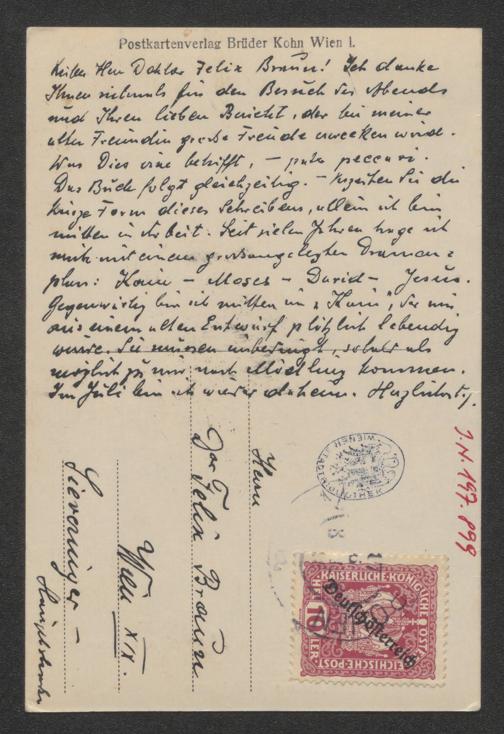 Postkartenverlag Brüder Kohn Wien I.
Lieber Herr Doktor Felix Braun! Ich danke
Ihnen vielmals für den Besuch des Abends
und Ihren lieben Bericht, der bei meiner
alten Freundin große Freude erwecken wird.
Was Dies irae betrifft, – pater peccavi.
Das Buch folgt gleichzeitig. – Verzeihen Sie die
kurze Form dieses Schreibens, allein ich bin
mitten in Arbeit. Seit vielen Jahren trage ich
mich mit einem großangelegten Dramen=
plan: Kain – Moses – David – Jesus.
Gegenwärtig bin ich mitten im „Kain", der mir
aus einem alten Entwurf plötzlich lebendig
wurde. Sie müssen unbedingt, sobald als
möglich zu mir nach Mödling kommen.
Im Juli bin ich wieder daheim. Herzlichst
Herrn
Dr Felix Braun
Wien XIX.
Sieveringer –
Hauptstraße
I.N. 197.899
WIENER STADTBIBLIOTHEK
KAISERLICHE KÖNIGLICHE
ÖSTERREICHISCHE POST
10 HELLER
Deutschösterreich